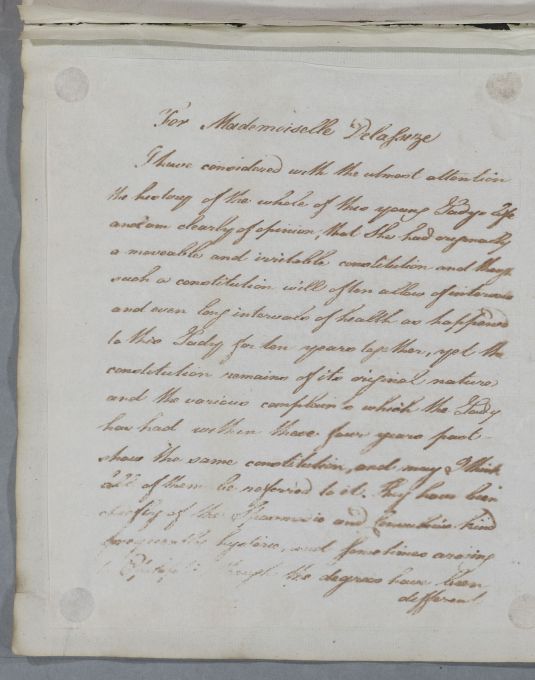 For Mademoiselle Delasuze
I have considered with the utmost attention
the history of the whole of this young Ladys life
and am clearly of opinion, that She had originally
a moveable and irritable constitution and though
such a constitution will often allow of intervals
and even long intervals of health as happened
to this Lady for ten years together, yet the
constitution remains of its original nature,
and the various complaints which the Lady
has had within these four years past
show the same constitution, and may I think
all of them be referred to it. They have been
chiefly of the Spasmodic and Convulsive kind
frequently hysteric, and sometimes arising
to though the degrees have been
different